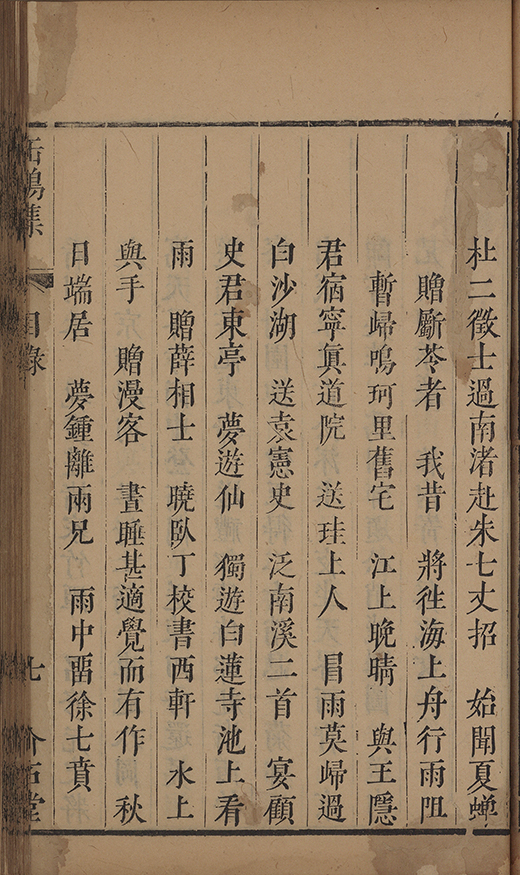 杜二徵士過南渚赴朱七丈招　始聞夏蟬
贈斸苓者　我昔　將徃海上舟行雨阻
暫歸鳴珂里舊宅　江上晚晴　與王隱
君宿寧眞道院　送珪上人　冒雨莫歸過
白沙湖　送袁憲史　泛南溪二首　宴顧
史君東亭　夢遊仙　獨遊白蓮寺池上看
雨　贈薛相士　曉臥丁校書西軒　水上
與手　贈漫客　晝睡甚適覺而有作　秋
日端居　夢鍾離兩兄　雨中畱徐七賁
缶鳴集　目錄　七